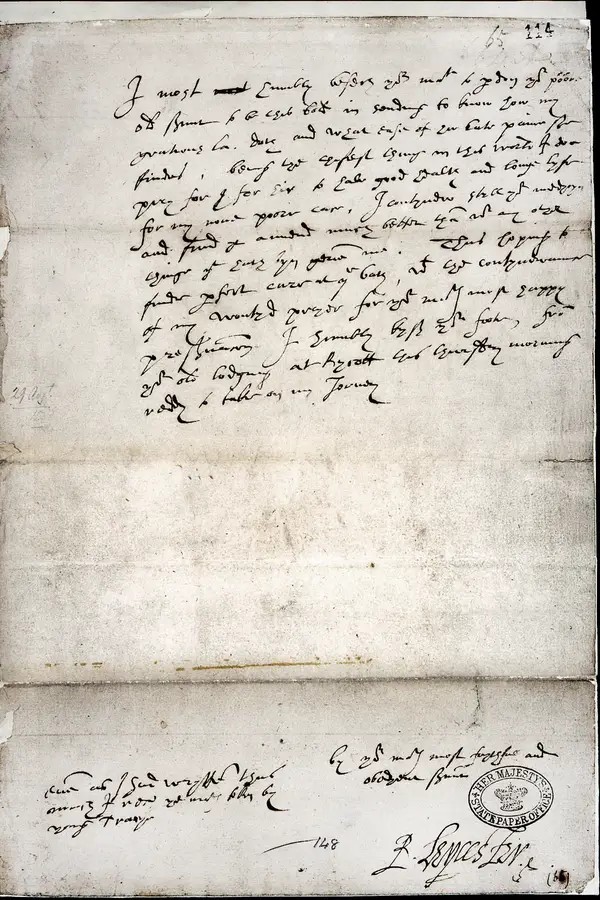 65 114
I most humbly besech yor matie to pdon yor poore
old sarvnt to be thus bold in sending to know how my
gratious la. doth and what ease of her late paine she
findes, being the chefest thinge in this world I doe
pray for & for hir to have good health and longe lyfe
for my none poore case, I contynew still yor medycyn
and find yt amend much better than wth any other
thinge that hath byn geven me. Thus hoping to
finde pfect cure at ye bath, wth the contynewance
of my wontyd preyer for yor maties most happy
preservacion I humbly kyss yor foote, fro
yor old lodging at Rycott this thursday morning
reddy to take on my Jorney
29 Augt
by yor maties most faythfull and
obedyent sarvant
R. Leycester
even as I had wrytten thus
much I receved yor maties token by
yonge Tracye
148
HER MAJESTY'S
STATE PAPER OFFICE
(66)